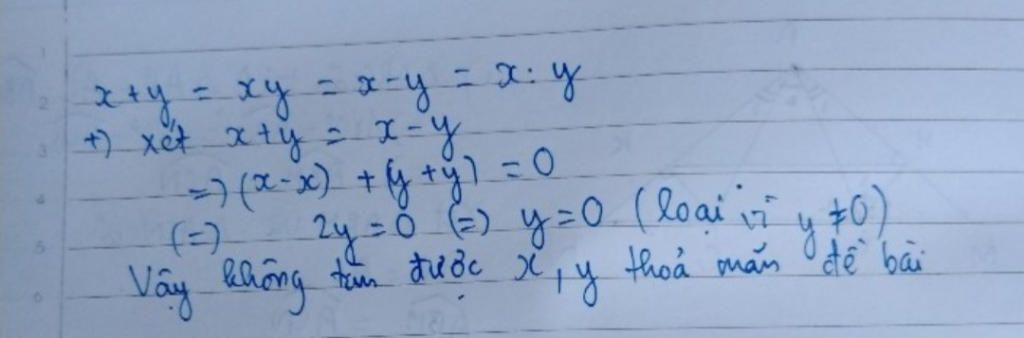 x+y = xy = x-y = x:y
+) xét x+y = x-y
=) (x-x) + (y+y) = 0
(=) 2y=0 (=) y=0 (loại vì y≠0)
Vậy không tìm được x, y thoả mãn đề bài